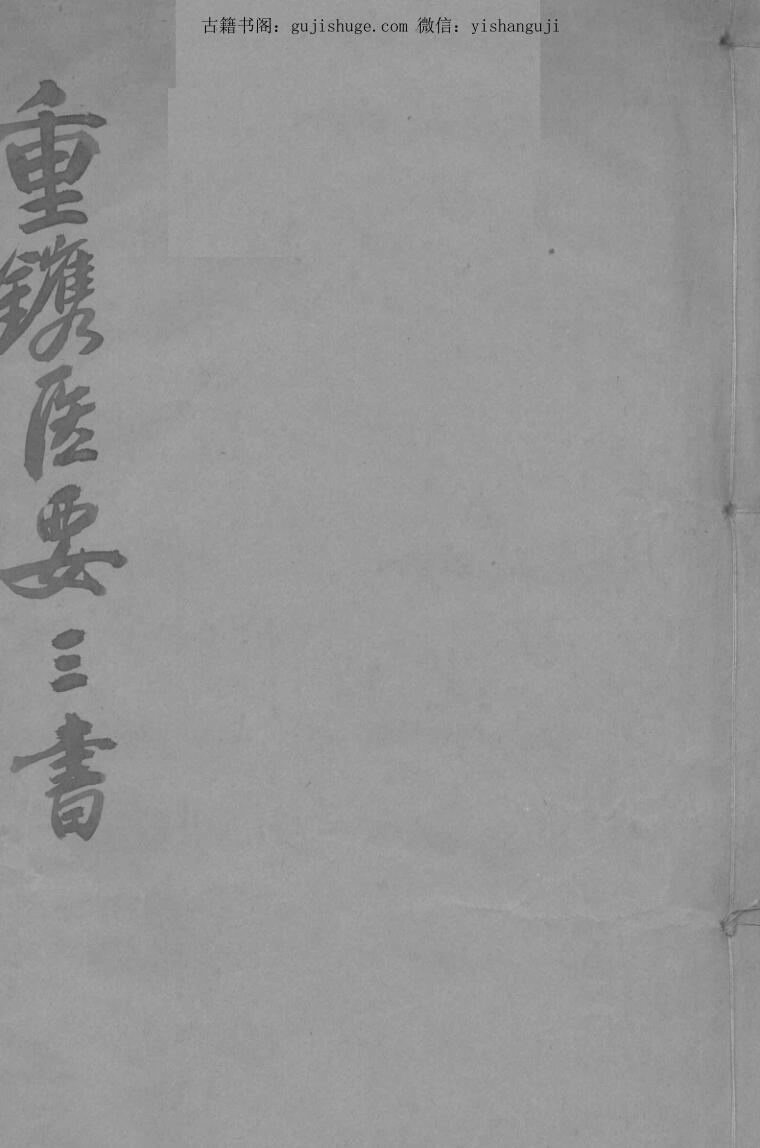 古籍书阁：gujishuge.com 微信：yishanguji
重鐫医要三書